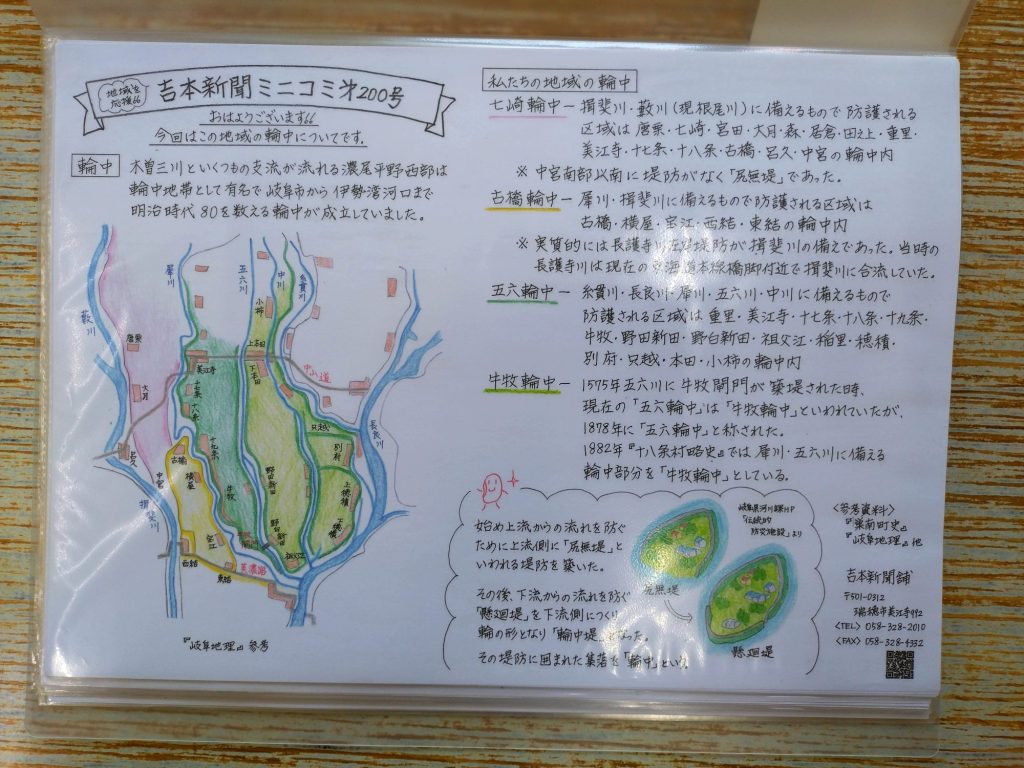 地域を
応援〃
吉本新聞ミニコミ㐧200号
おはようございます〃
今回はこの地域の輪中についてです。
輪中
木曽三川といくつもの支流が流れる濃尾平野西部は
輪中地帯として有名で岐阜市から伊勢湾河口まで
明治時代80を数える輪中が成立していました。
藪川
犀川
五六川
中川
糸貫川
小柿
唐栗
大月
美江寺
上本田
下本田
中山道
十七条
十八条
十九条
只越
別府
長良川
呂久
中宮
古橋
横屋
牛牧
野田新田
上穂積
下穂積
揖斐川
宝江
野白新田
祖父江
西結
東結
美濃路
『岐阜地理』参考
私たちの地域の輪中
七崎輪中－揖斐川・藪川(現根尾川)に備えるもので防護される
区域は唐栗・七崎・宮田・大月・森・居倉・田之上・重里・
美江寺・十七条・十八条・古橋・呂久・中宮の輪中内
※中宮南部以南に堤防がなく「尻無堤」であった。
古橋輪中－犀川・揖斐川に備えるもので防護される区域は
古橋・横屋・宝江・西結・東結の輪中内
※実質的には長護寺川左岸堤防が揖斐川の備えであった。当時の
長護寺川は現在の東海道本線橋脚付近で揖斐川に合流していた。
五六輪中－糸貫川・長良川・犀川・五六川・中川に備えるもので
防護される区域は重里・美江寺・十七条・十八条・十九条・
牛牧・野田新田・野白新田・祖父江・稲里・穂積・
別府・只越・本田・小柿の輪中内
牛牧輪中－1575年五六川に牛牧閘門が築堤された時、
現在の「五六輪中」は「牛牧輪中」といわれていたが、
1878年に「五六輪中」と称された。
1882年『十八条村略史』では犀川・五六川に備える
輪中部分を「牛牧輪中」としている。
始め上流からの流れを防ぐ
ために上流側に「尻無堤」と
いわれる堤防を築いた。
その後、下流からの流れを防ぐ
「懸廻堤」を下流側につくり
輪の形となり「輪中堤」となった。
その堤防に囲まれた集落を「輪中」という
岐阜県河川課HP
「伝統的
防災施設」より
尻無堤
懸廻堤
〈参考資料〉
『巣南町史』
『岐阜地理』他
吉本新聞舗
〒501-0312
瑞穂市美江寺992
〈TEL〉058-328-2010
〈FAX〉058-328-4332